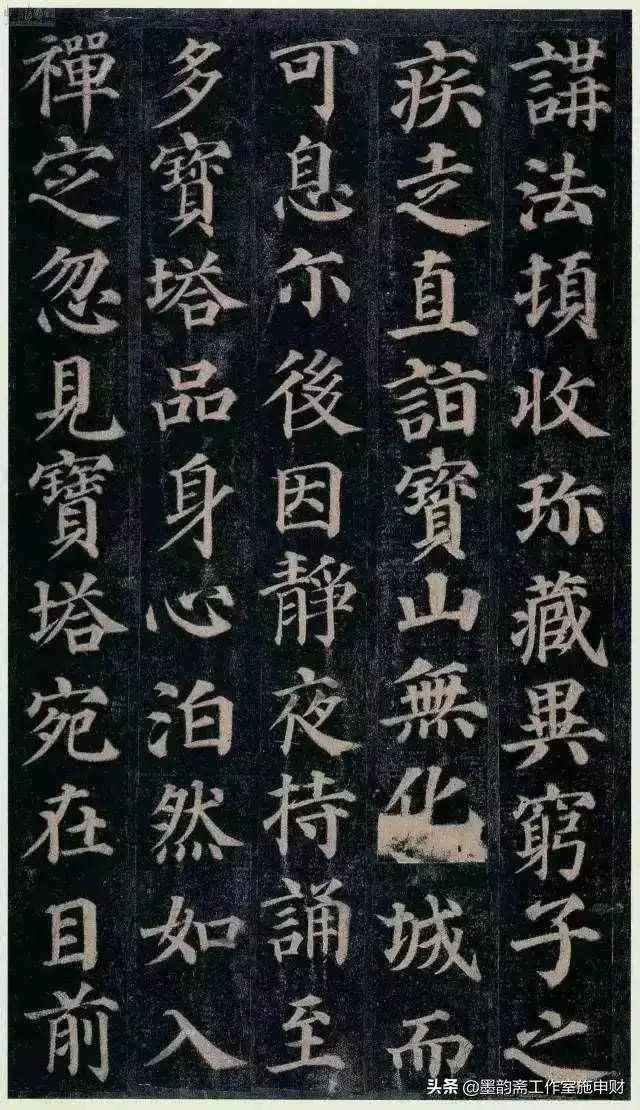 講法頓收珎藏異窮子之
疾走直詣寶山無化城而
可息尒後因靜夜持誦至
多寶塔品身心泊然如入
禪定忽見寶塔宛在目前
头条 @墨韵斋工作室施申财